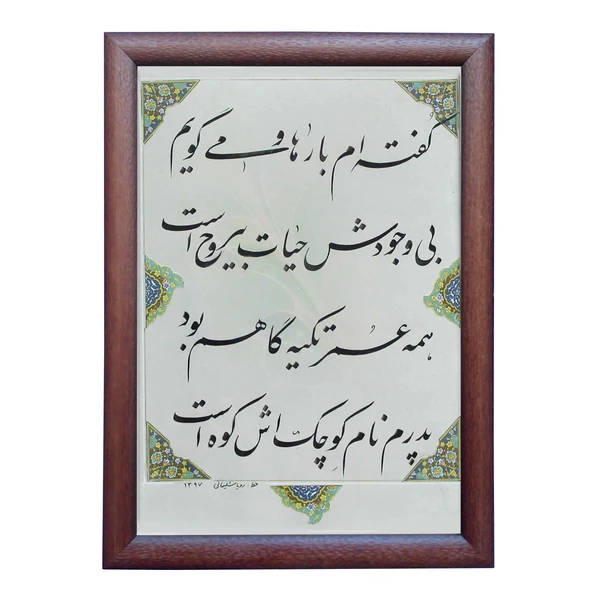 گفته ام بارها و می گویم
بی وجودش حیات بیروح است
همه عمر تکیه گاهم بود
پدرم نام کوچک اش کوه است
خط: رویا سلیمانی ۱۳۹۷